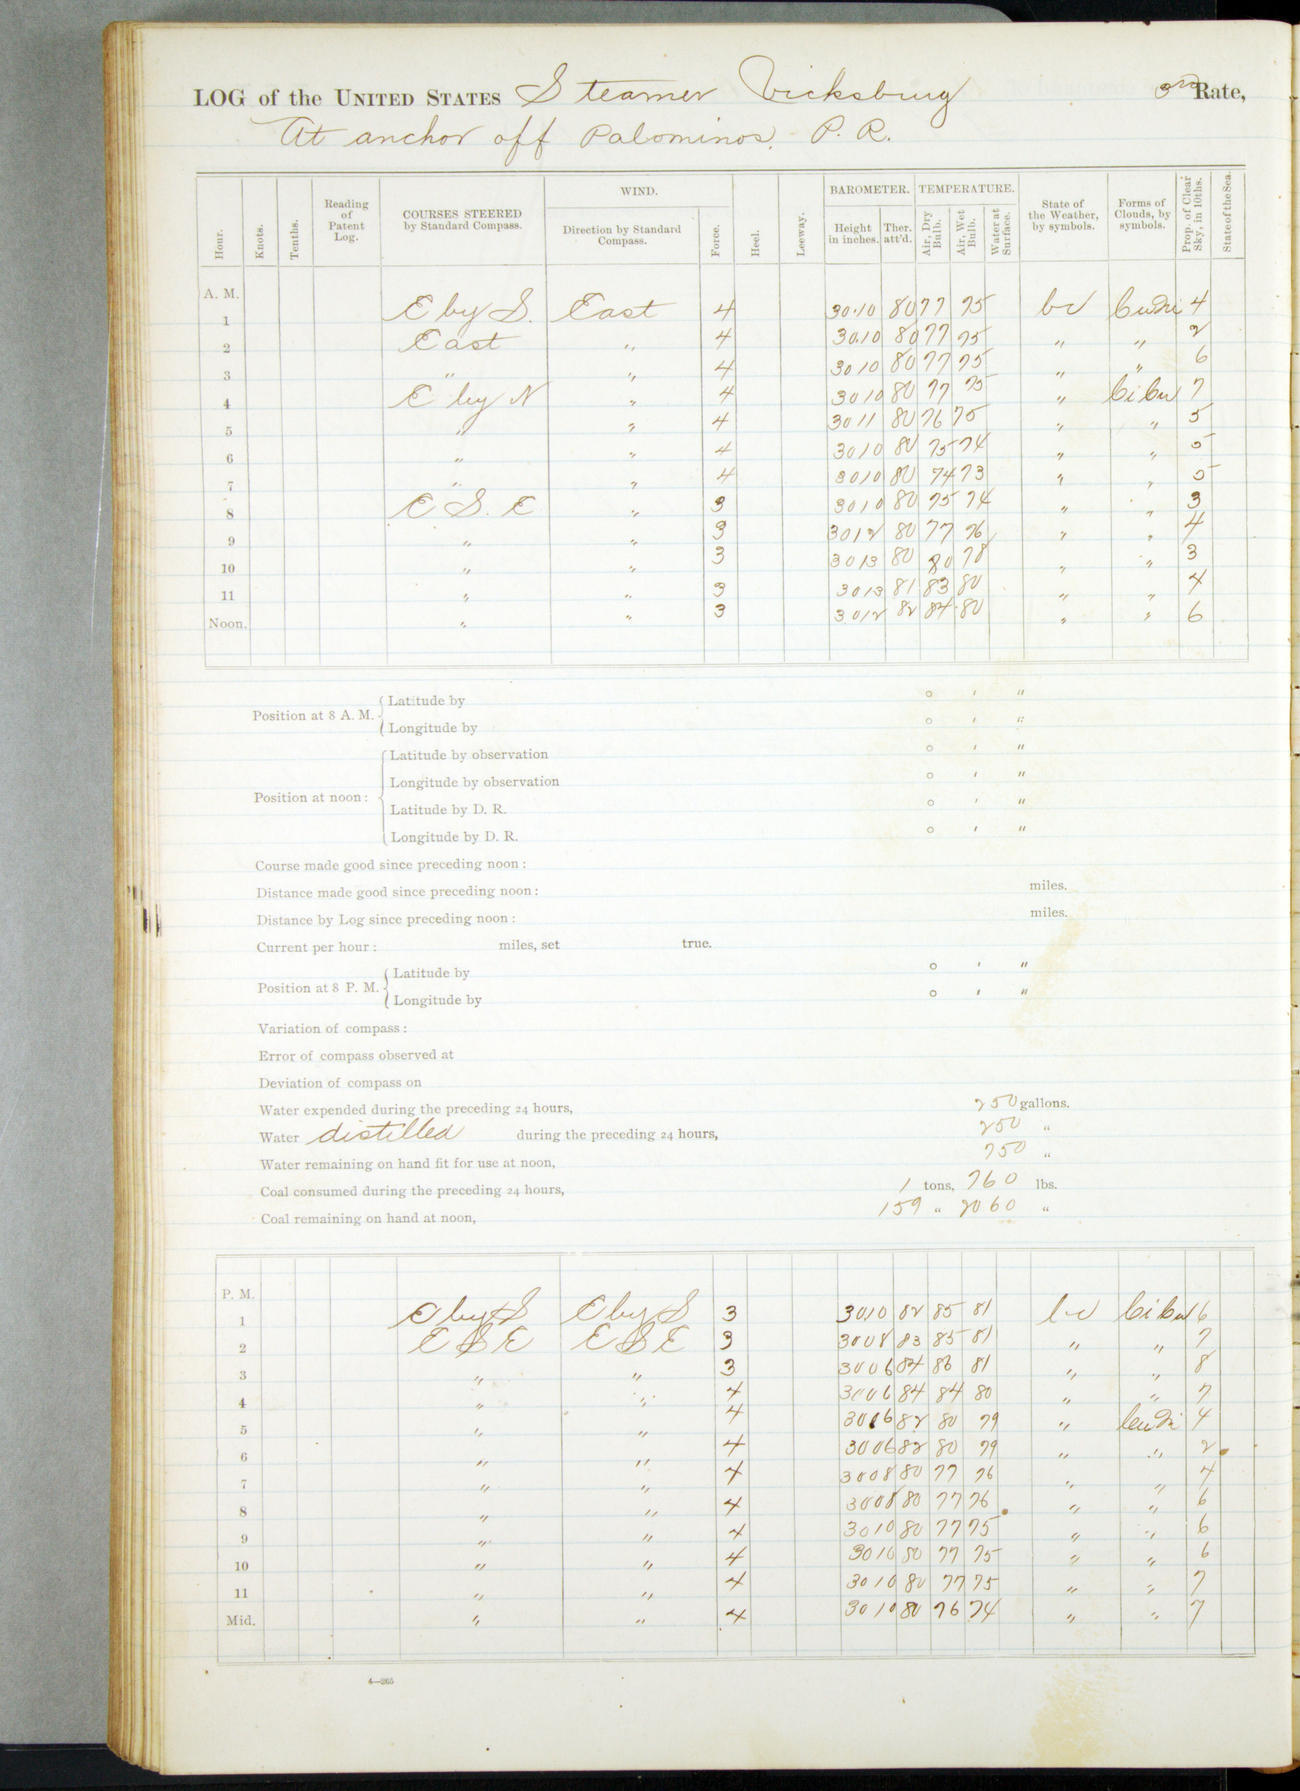 LOG of the UNITED STATES Steamer Vicksburg 3rd Rate,
At anchor off Palominos, P. R.
Hour. Knots. Tenths. Reading of Patent Log. COURSES STEERED by Standard Compass. WIND. Direction by Standard Compass. Force. Heel. Leeway. BAROMETER. Height in inches. Ther. att'd. TEMPERATURE. Air, Dry Bulb. Air, Wet Bulb. Water at Surface. State of the Weather, by symbols. Forms of Clouds, by symbols. Prop. of Clear Sky, in 10ths. State of the Sea.
A. M.
1 E by S. East 4 30.10 80 77 75 bc Cu Ni 4
2 East " 4 30.10 80 77 75 " " 2
3 " " 4 30 10 80 77 75 " " 6
4 E by N " 4 30 10 80 77 75 " Ci Cu 7
5 " " 4 30 11 80 76 75 " " 5
6 " " 4 30 10 80 75 74 " " 5
7 " " 4 30 10 80 74 73 " " 5
8 E S. E " 3 30 10 80 75 74 " " 3
9 " " 3 30 12 80 77 76 " " 4
10 " " 3 30 13 80 80 78 " " 3
11 " " 3 30 13 81 83 80 " " 4
Noon. " " 3 30 12 82 84 80 " " 6
Position at 8 A. M. Latitude by ° ' "
Longitude by ° ' "
Position at noon: Latitude by observation ° ' "
Longitude by observation ° ' "
Latitude by D. R. ° ' "
Longitude by D. R. ° ' "
Course made good since preceding noon:
Distance made good since preceding noon: miles.
Distance by Log since preceding noon: miles.
Current per hour: miles, set true.
Position at 8 P. M. Latitude by ° ' "
Longitude by ° ' "
Variation of compass:
Error of compass observed at
Deviation of compass on
Water expended during the preceding 24 hours, 250 gallons.
Water distilled during the preceding 24 hours, 250 "
Water remaining on hand fit for use at noon, 750 "
Coal consumed during the preceding 24 hours, 1 tons, 760 lbs.
Coal remaining on hand at noon, 159 " 2060 "
P. M.
1 E by S E by S 3 30 10 82 85 81 bc Ci Cu 6
2 E S E E S E 3 30 08 83 85 81 " " 7
3 " " 3 30 06 84 86 81 " " 8
4 " " 4 30 06 84 84 80 " " 7
5 " " 4 30 06 82 80 79 " Cu Ni 4
6 " " 4 30 06 82 80 79 " " 2
7 " " 4 30 08 80 77 76 " " 4
8 " " 4 30 08 80 77 76 " " 6
9 " " 4 30 10 80 77 75 " " 6
10 " " 4 30 10 80 77 75 " " 6
11 " " 4 30 10 80 77 75 " " 7
Mid. " " 4 30 10 80 76 74 " " 7
4—265